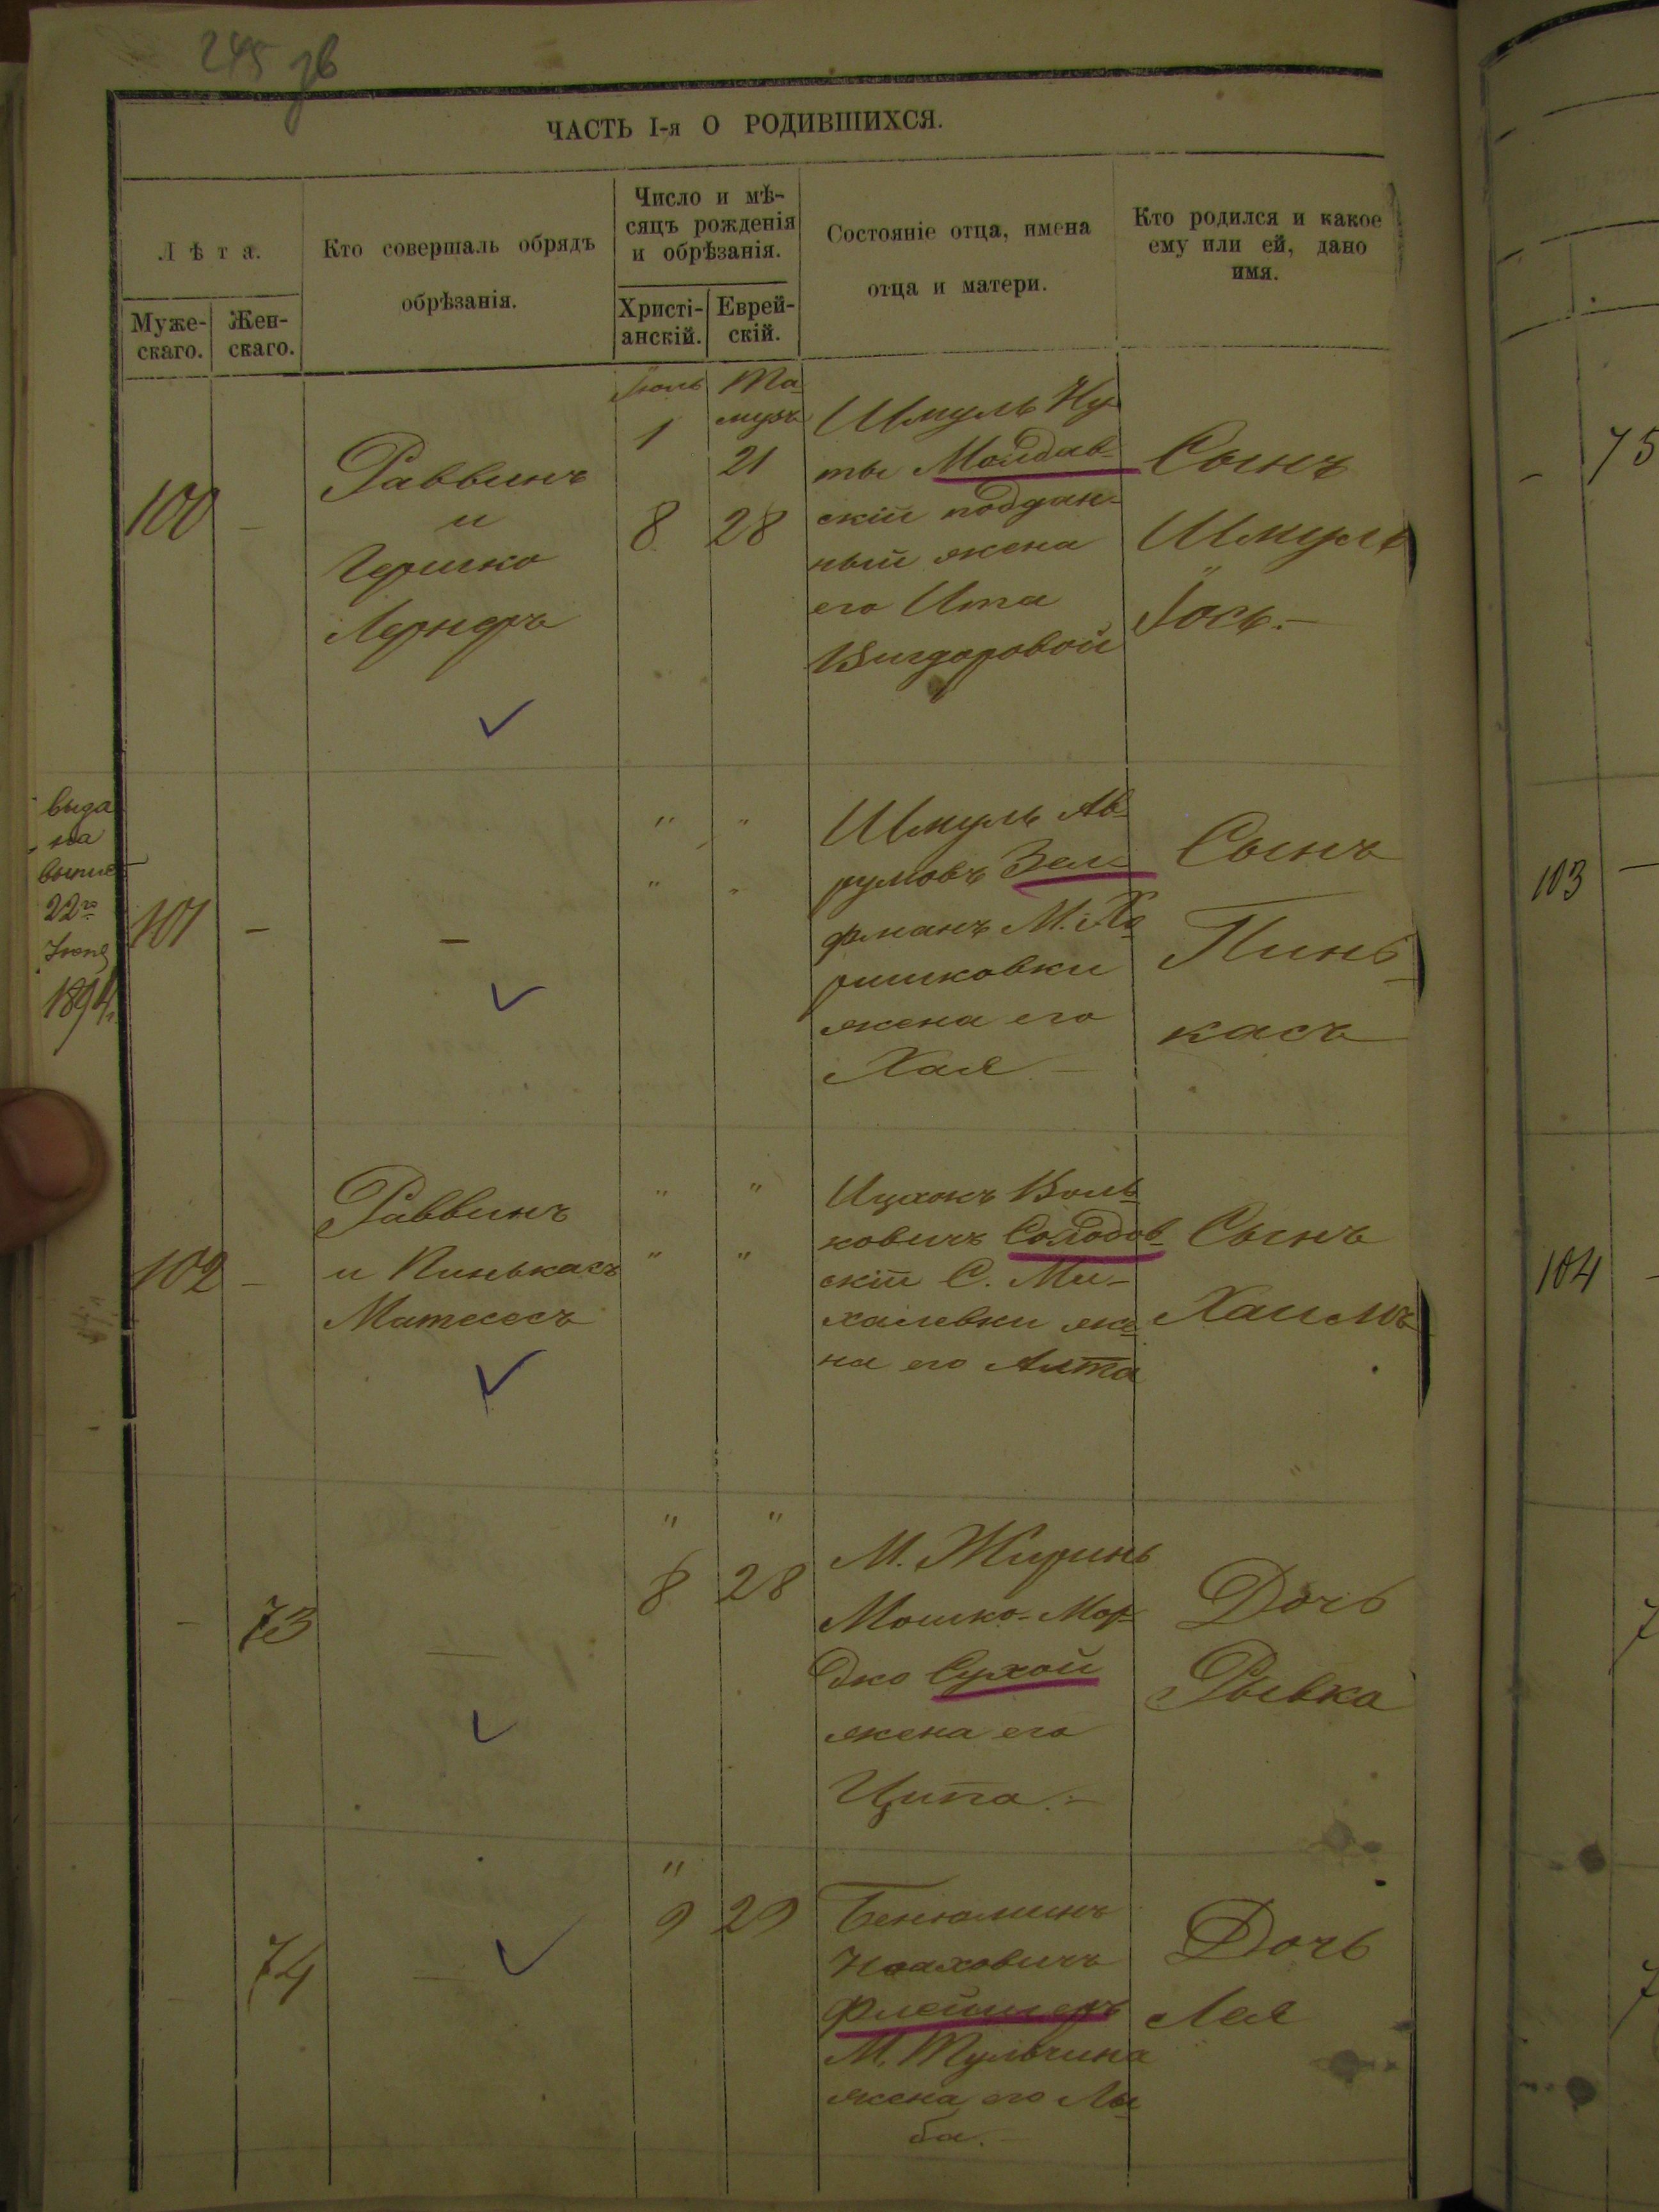 245 зв
ЧАСТЬ I-я О РОДИВШИХСЯ.
Лѣта.
Муже-
скаго.
Жен-
скаго.
Кто совершалъ обрядъ
обрѣзанія.
Число и мѣ-
сяцъ рожденія
и обрѣзанія.
Христі-
анскій.
Еврей-
скій.
Состояніе отца, имена
отца и матери.
Кто родился и какое
ему или ей, дано
имя.
100
-
Раввинъ
и
Гершко
Лернеръ
Іюль
1
8
Та
музъ
21
28
Шмуль Ну
ты Молдав-
скій поддан-
ный жена
его Ита
Вигдоровой
Сынъ
Шмуль
Іось.-
выда
на
22го
1894г.
101
-
-
" "
" "
Шмуль Аб
румовъ Зел-
фманъ М. Хо
ришковки
жена его
Хая
Сынъ
Пинь-
касъ
102
-
Раввинъ
и Пинькасъ
Матесесъ
" "
" "
Ицхокъ Воль-
ковичъ Солодов-
скій С. Ми-
халевки же-
на его Алта
Сынъ
Хаимъ
-
73
-
" "
8 28
М. Журинъ
Мошко-Мор-
дко Сухой
жена его
Ципа.-
Дочь
Рывка
74
-
"
9 29
Бенюминъ
Ноаховичъ
Флейшеръ
М. Тульчина
жена его Лы
ба.-
Дочь
Лея
75
103
-
104
-
7
7